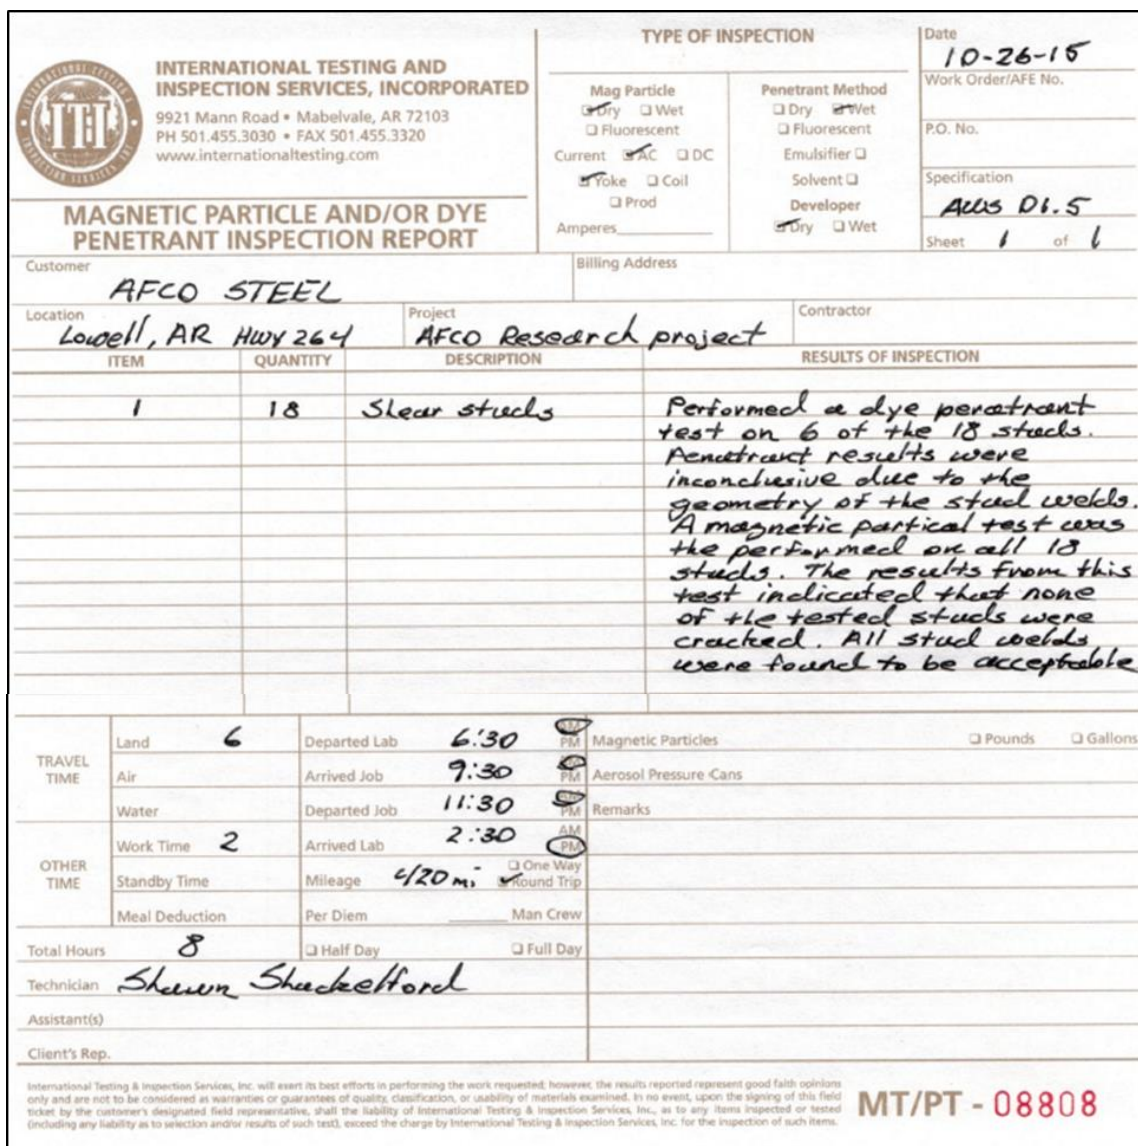 INTERNATIONAL TESTING AND
INSPECTION SERVICES, INCORPORATED
9921 Mann Road • Mabelvale, AR 72103
PH 501.455.3030 • FAX 501.455.3320
www.internationaltesting.com
ITI
MAGNETIC PARTICLE AND/OR DYE
PENETRANT INSPECTION REPORT
TYPE OF INSPECTION
Mag Particle
Dry Wet
Fluorescent
Current AC DC
Yoke Coil
Prod
Amperes
Penetrant Method
Dry Wet
Fluorescent
Emulsifier
Solvent
Developer
Dry Wet
Date
10-26-15
Work Order/AFE No.
P.O. No.
Specification
AWS D1.5
Sheet 1 of 1
Customer
AFCO STEEL
Billing Address
Location
Lowell, AR Hwy 264
Project
AFCO Research project
Contractor
ITEM QUANTITY DESCRIPTION RESULTS OF INSPECTION
1 18 Shear studs Performed a dye penetrant
test on 6 of the 18 studs.
Penetrant results were
inconclusive due to the
geometry of the stud welds.
A magnetic partical test was
the performed on all 18
studs. The results from this
test indicated that none
of the tested studs were
cracked. All stud welds
were found to be acceptable
TRAVEL TIME
Land 6 Departed Lab 6:30 AM PM
Air Arrived Job 9:30 AM PM
Water Departed Job 11:30 AM PM
OTHER TIME
Work Time 2 Arrived Lab 2:30 AM PM
Standby Time Mileage 420 mi One Way Round Trip
Meal Deduction Per Diem Man Crew
Total Hours 8 Half Day Full Day
Technician Shawn Shackelford
Assistant(s)
Client's Rep.
Magnetic Particles Pounds Gallons
Aerosol Pressure Cans
Remarks
International Testing & Inspection Services, Inc. will exert its best efforts in performing the work requested; however, the results reported represent good faith opinions
only and are not to be considered as warranties or guarantees of quality, classification, or usability of materials examined. In no event, upon the signing of this field
ticket by the customer's designated field representative, shall the liability of International Testing & Inspection Services, Inc., as to any items inspected or tested
(including any liability as to selection and/or results of such test), exceed the charge by International Testing & Inspection Services, Inc. for the inspection of such items.
MT/PT - 08808